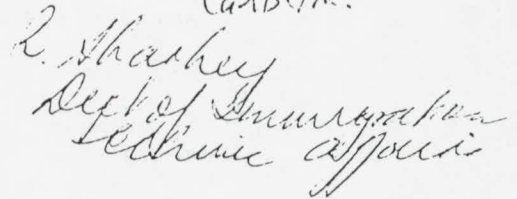 R. Sharkey
Dept of Immigration
& Ethnic Affairs